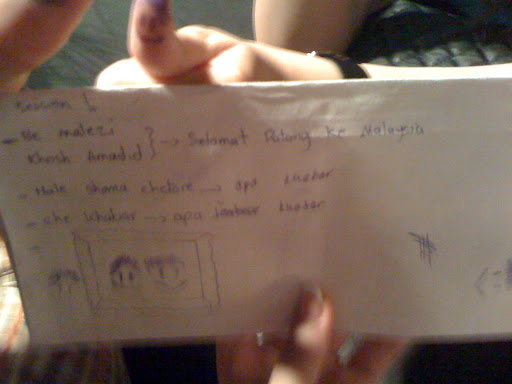 Session 1
- Be malezi
Khosh Amadid } → Selamat Datang ke Malaysia
- Hale shoma chetore → apa khabar
- che khabar → apa khabar